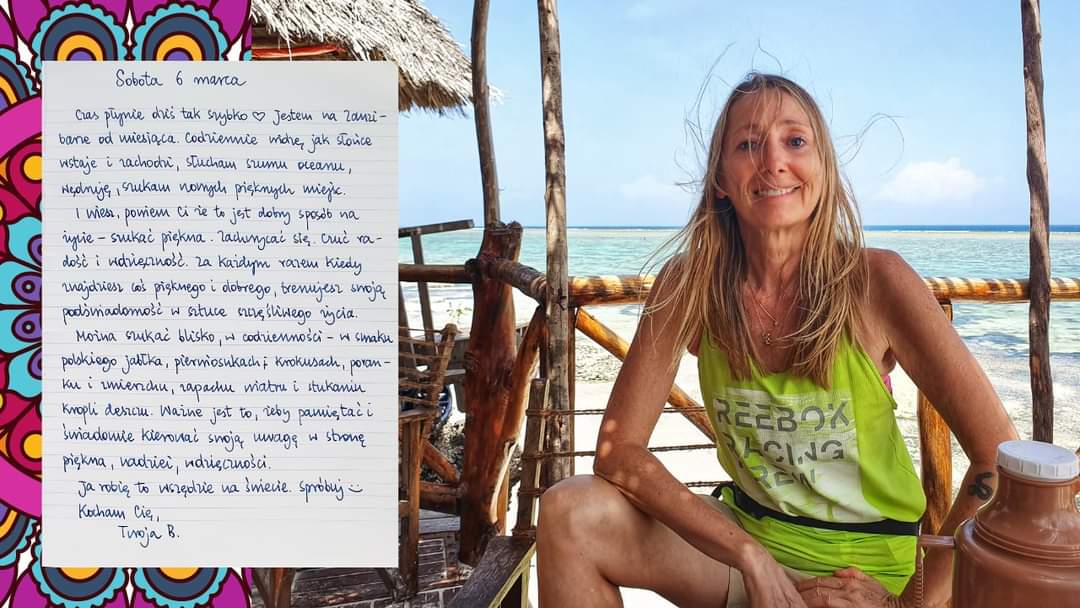 Sobota 6 marca
Czas płynie dziś tak szybko ♡ Jestem na Zanzi-
barze od miesiąca. Codziennie widzę, jak słońce
wstaje i zachodzi, słucham szumu oceanu,
wędruję, szukam nowych pięknych miejsc.
I wiesz, powiem Ci że to jest dobry sposób na
życie – szukać piękna. Zachwycać się. Czuć ra-
dość i wdzięczność. Za każdym razem kiedy
znajdziesz coś pięknego i dobrego, trenujesz swoją
podświadomość w sztuce szczęśliwego życia.
Można szukać blisko, w codzienności – w smaku
polskiego jabłka, pierwiosnkach, krokusach, poran-
ku i zmierzchu, zapachu wiatru i stukaniu
kropli deszczu. Ważne jest to, żeby pamiętać i
świadomie kierować swoją uwagę w stronę
piękna, nadziei, wdzięczności.
Ja robię to wszędzie na świecie. Spróbuj :)
Kocham Cię,
Twoja B.
REEBOK
RACING
CREW